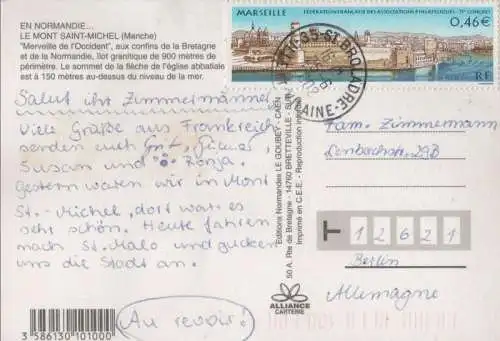 EN NORMANDIE...
LE MONT SAINT-MICHEL (Manche)
"Merveille de l'Occident", aux confins de la Bretagne
et de la Normandie, îlot granitique de 900 mètres de
périmètre. Le sommet de la flèche de l'église abbatiale
est à 150 mètres au-dessus du niveau de la mer.
Salut ihr Zimmermänner
Viele Grüße aus Frankreich
senden euch
Susann und Ronja.
Gestern waren wir in Mont
St.-Michel, dort war es
sehr schön. Heute fahren
nach St. Malo und gucken
uns die Stadt an.
Au revoir!
3 586130 101000
Editions Normandes LE GOUBEY - CAEN
50 A, Rte de Bretagne - 14760 BRETTEVILLE - SUR
Imprimé en C.E.E. - Reproduction interdite
ALLIANCE
CARTERIE
MARSEILLE
FÉDÉRATION FRANÇAISE DES ASSOCIATIONS PHILATÉLIQUES - 75e CONGRÈS
0,46 €
RF
ST BROLADRE
Fam. Zimmermann
Lenbachstr. 29B
12621
Berlin
Allemagne